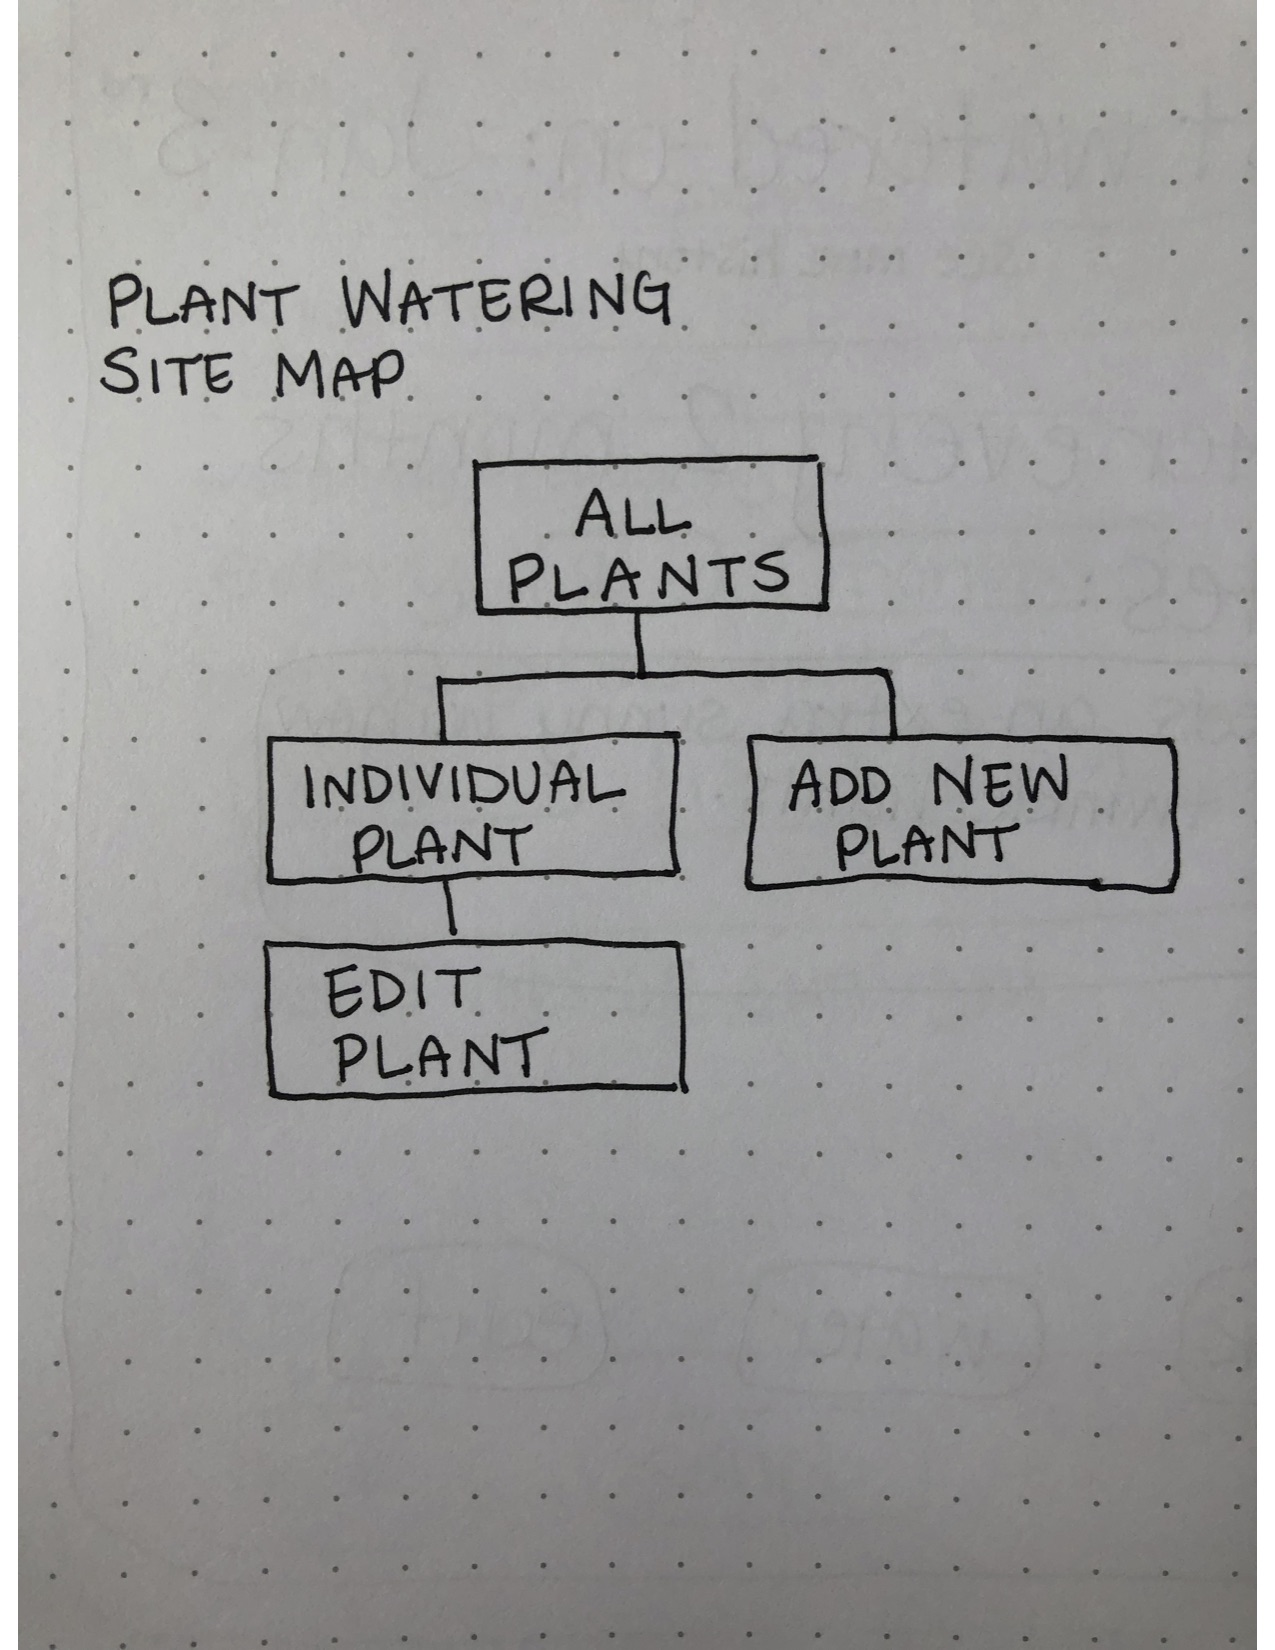 PLANT WATERING
SITE MAP
ALL
PLANTS
INDIVIDUAL
PLANT
ADD NEW
PLANT
EDIT
PLANT